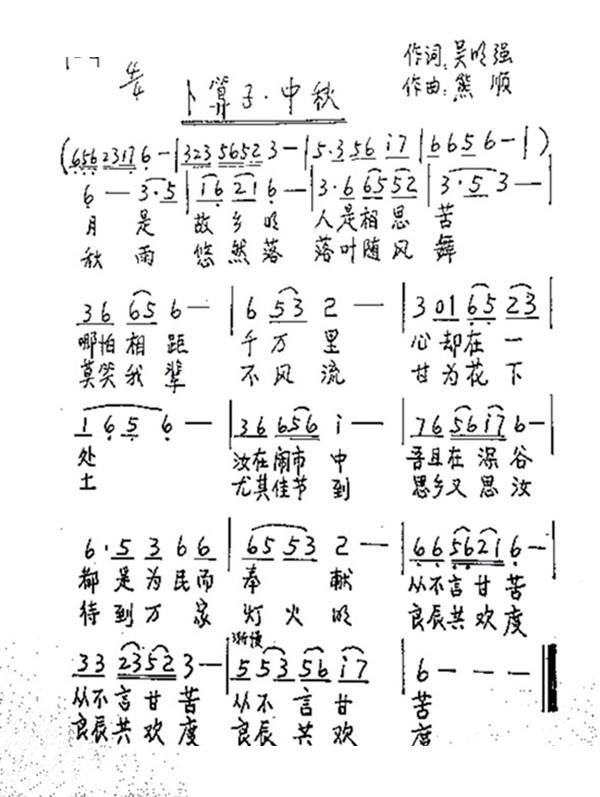 作词:吴明强
卜算子·中秋
作曲:熊顺
(656 2317 6 — | 323 5652 3 — | 5·3 56 i7 | 6 65 6 — | )
6 — 3·5 | i6 21 6 — | 3·6 65 52 | 3·5 3 — |
月是故乡明人是相思苦
秋雨悠然落落叶随风舞
36 65 6 — | 6 53 2 — | 3 01 65 23 |
哪怕相距千万里心却在一
莫笑我辈不风流甘为花下
1 6 5 6 — | 36 656 i — | 76 56i7 6 — |
处汝在闹市中吾且在深谷
土尤其佳节到思乡又思汝
6·5 3 6 6 | 65 53 2 — | 66 5621 6 — |
都是为民而奉献从不言甘苦
待到万家灯火明良辰共欢度
渐慢
33 2352 3 — | 5 53 56 i7 | 6 — — —
从不言甘苦从不言甘苦
良辰共欢度良辰共欢度